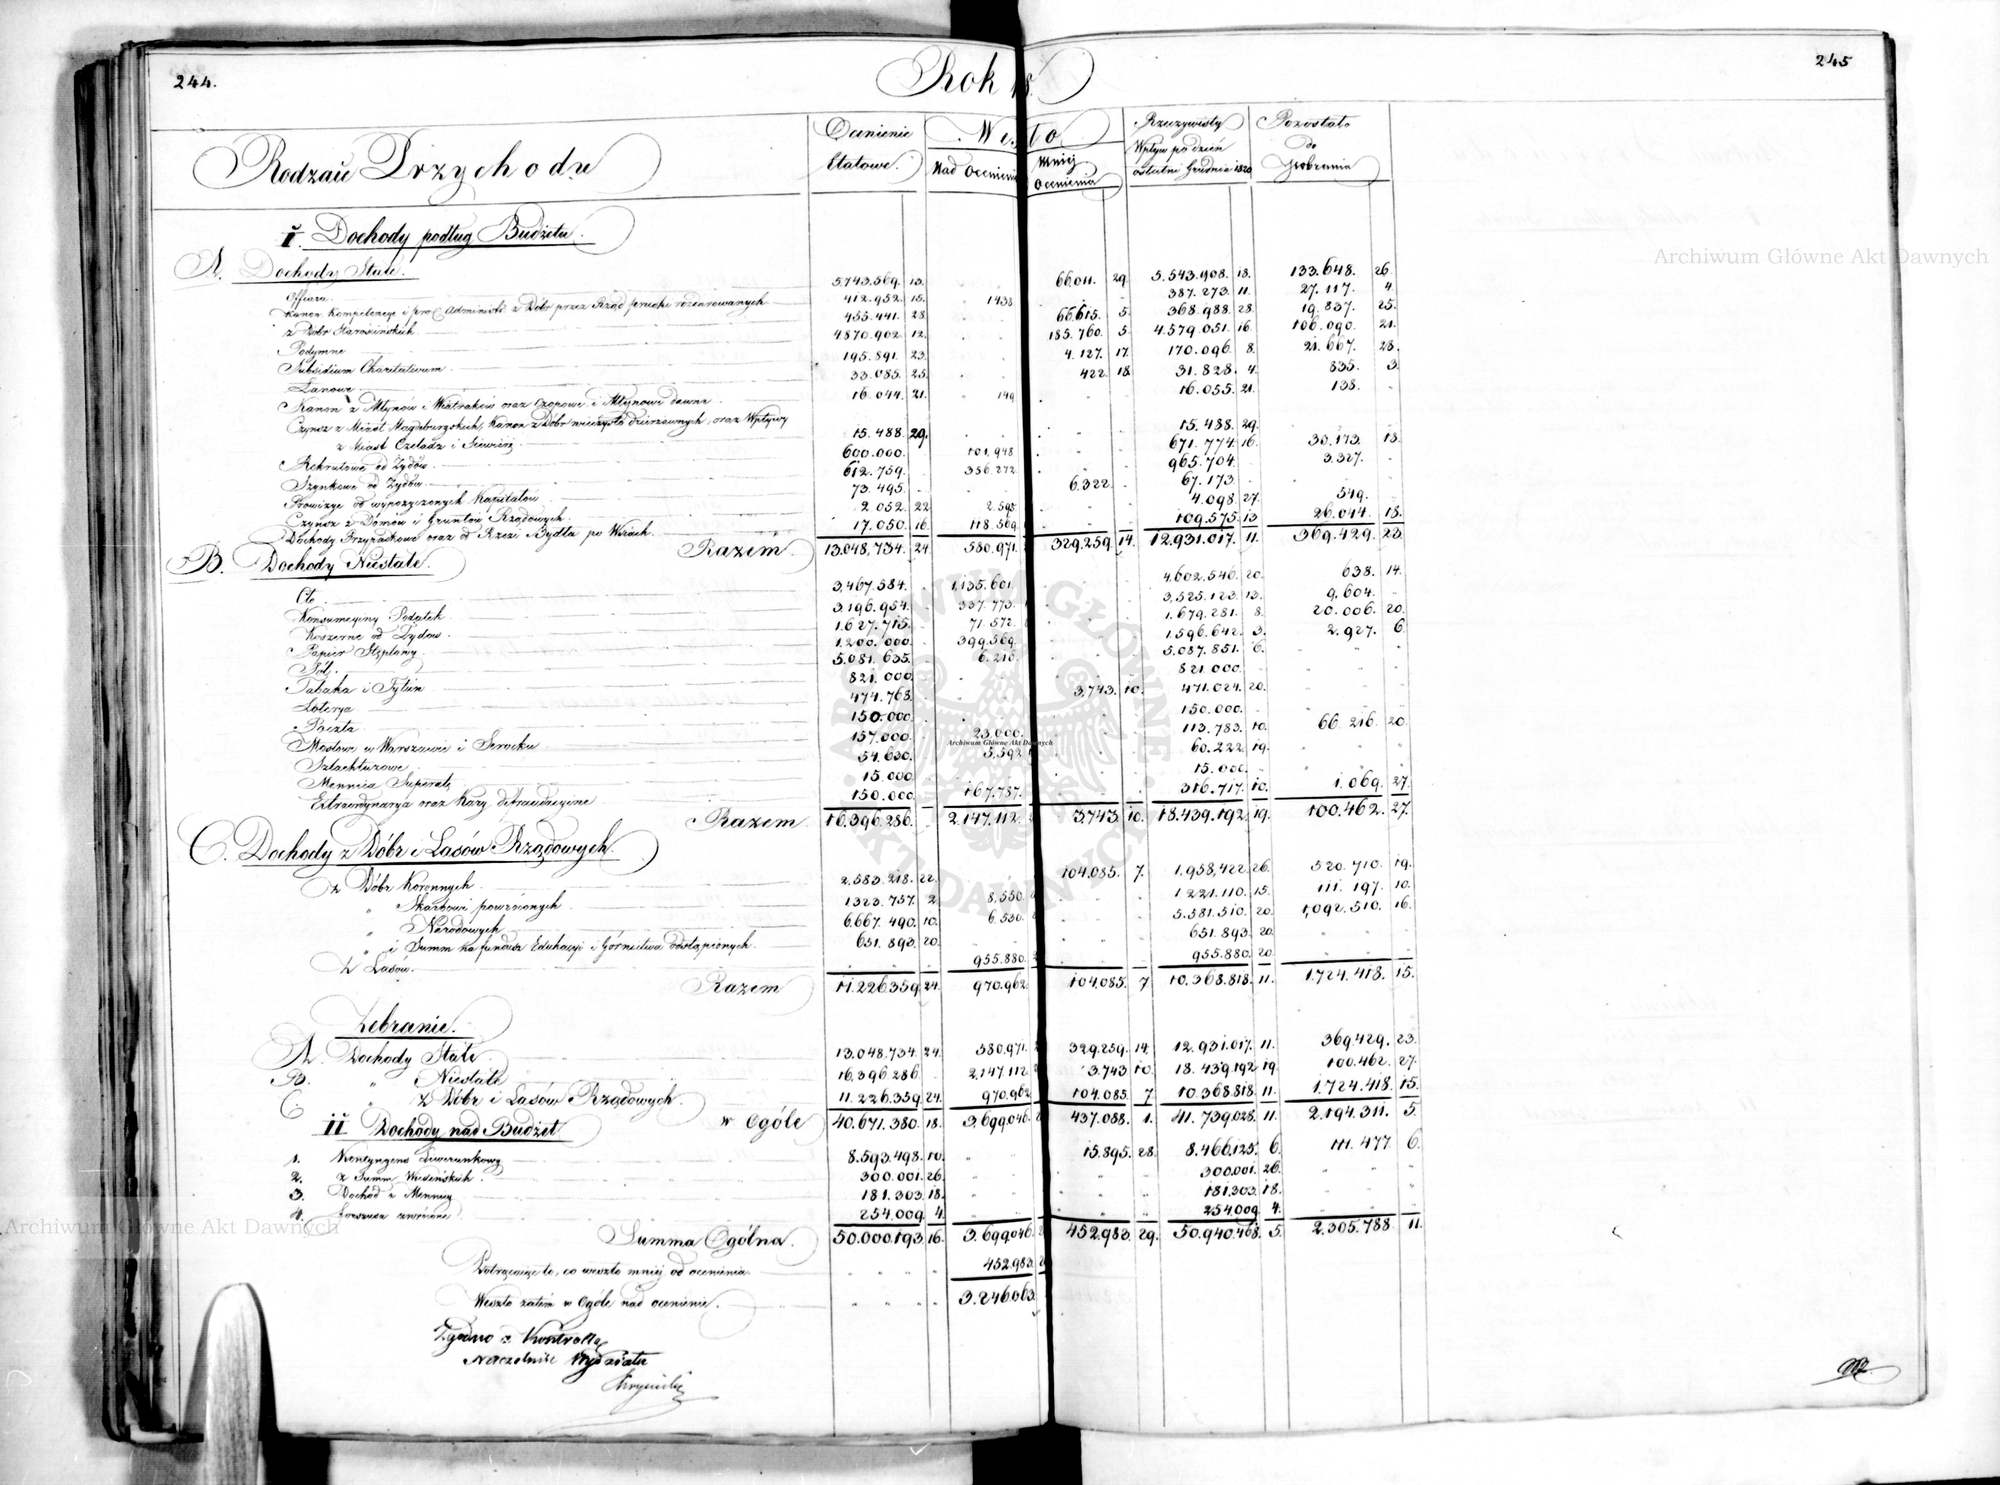 244.
Rok 18
245
Rodzaie Przychodu
Ocenienie Etatowe.
Weszło
Nad Ocenienie
Mniej Ocenienia
Rzeczywisty Wpływ po dzień ostatni Grudnia 1820
Pozostało do Zebrania
I. Dochody podług Budżetu.
A. Dochody Stałe.
Offiara 5.743.569. 13. 66.011. 29. 5.543.908. 18. 133.648. 26.
Kanon Kompetencye i pro Administr: z Dóbr przez Rząd pruski rozdarowanych 412.952. 15. 1438 387.273. 11. 27.117. 4.
z Dóbr Starościńskich 455.441. 28. 66.615. 5. 368.988. 28. 19.837. 25.
Podymne 4870.902. 12. 185.760. 5. 4.579.051. 16. 106.090. 21.
Subsidium Charitativum. 195.891. 23. 4.127. 17. 170.096. 8. 21.667. 28.
Łanowe 33.085. 25. 422. 18. 31.828. 4. 835. 3.
Kanon z Młynów i Wiatraków oraz Czopowe i Młynowe dawne 16.044. 21. 149 16.055. 21. 138.
Czynsz z Miast Magdeburgskich, Kanon z Dóbr wieczysto dzierżawnych, oraz Wpływy
z Miast Czeladz i Siewierz. 15.488. 29. 15.488. 29.
Rekrutowe od Żydów. 600.000. 101.948 671.774. 16. 30.173. 13.
Szynkowe od Żydów. 612.759. 356.272. 965.704. 3.327.
Prowizye od wypożyczonych Kapitałów 73.495. 6.322. 67.173.
Czynsz z Domów i Gruntów Rządowych. 2.052. 22. 2.595. 4.098. 27. 549.
Dochody Przypadkowe oraz od Rzezi Bydła po Wsiach. 17.050. 16. 118.569. 109.575. 13 26.044. 13.
Razem 13.048,734. 24. 580.971. 329.259. 14. 12.931.017. 11. 369.429. 23.
B. Dochody Niestałe.
Cło 3,467.584. 1,135.601. 4.602.546. 20. 638. 14.
Konsumcyiny Podatek 3.196.954. 337.773. 3,525.123. 13. 9.604.
Koszerne od Żydów. 1.627.715. 71.572. 1.679.281. 8. 20.006. 20.
Papier Stęplowy. 1.200.000. 399.569. 1.596.642. 3. 2.927. 6.
Sól. 5.081.635. 6.216. 5.087.851. 6.
Tabaka i Tytuń 821.000. 821.000.
Loterya 474.768. 3,743. 10. 471.024. 20.
Poczta 150.000. 150.000.
Mostowe w Warszawie i Serocku 157.000. 23.000. 113.783. 10. 66.216. 20.
Szlachtuzowe 54.630. 5.592 60.222. 19.
Mennica Superatę 15.000 15.000.
Extraordynarya oraz Kary defraudacyine 150.000. 167.787. 316.717. 10. 1.069. 27.
Razem 16.396.286. 2.147.112. 3.743. 10. 18.439.192. 19. 100.462. 27.
C. Dochody z Dóbr i Lasów Rządowych.
z Dóbr Koronnych. 2.583.218. 22. 104.085. 7. 1.958,422. 26. 520.710. 19.
" Skarbowi powróconych. 1323.757. 2. 8.550. 1221.110. 15. 111.197. 10.
" Narodowych 6.667.490. 10. 6.530. 5.581.510. 20. 1,092.510. 16.
" i Summ na fundusz Edukacyi i Górnictwa odstąpionych. 651.893. 20. 651.893. 20.
Z Lasów. 955.880. 955.880. 20.
Razem 11.226.359. 24. 970.962. 104.085. 7. 10.368.818. 11. 1.724.418. 15.
Zebranie.
A. Dochody Stałe. 13.048.734. 24. 580.971. 329.259. 14. 12.931.017. 11. 369.429. 23.
B. " Niestałe 16.396.286. 2.147.112 3.743 10. 18.439.192 19. 100.462. 27.
C " z Dóbr i Lasów Rządowych. 11.226.359. 24. 970.962 104.085. 7. 10.368.818. 11. 1.724.418. 15.
w Ogóle 40.671.380. 18. 3.699.046. 437.088. 1. 41.739.028. 11. 2.194.311. 5.
II Dochody nad Budżet
1. Kontyngens Liwerunkowy 8.593.498. 10. 15.895. 28. 8.466.125. 6. 111.477. 6.
2. z Summ Wiedeńskich. 300.001. 26. 300.001. 26.
3. Dochód z Mennicy 181.303. 18. 181.303. 18.
4. Forszusz zwrócone 254.009. 4. 254.009. 4.
Summa Ogólna. 50.000.193. 16. 3.699.046. 452.983. 29. 50.940.468. 5. 2.305.788. 11.
Potrąciwszy to, co weszło mniej od ocenienia. 452.983.
Weszło zatem w Ogóle nad ocenienie. 3.246.063.
Zgodno z Kontrollą
Naczelnik Wydziału
Archiwum Główne Akt Dawnych
Archiwum Główne Akt Dawnych
Archiwum Główne Akt Dawnych
ARCHIWUM GŁÓWNE AKT DAWNYCH